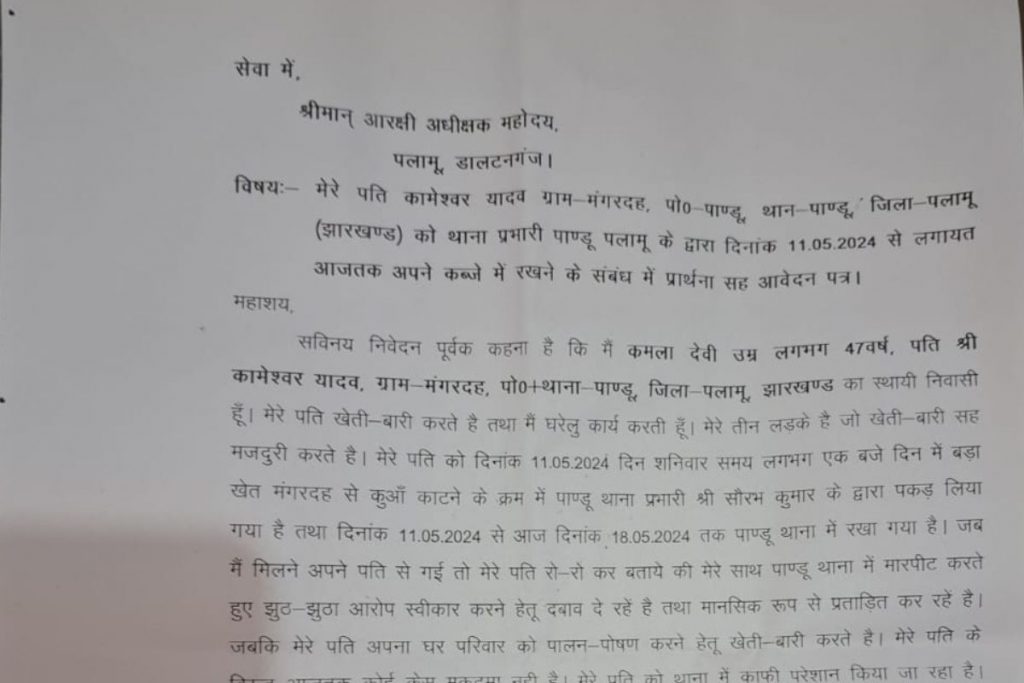 सेवा में,
श्रीमान् आरक्षी अधीक्षक महोदय,
पलामू, डालटनगंज।
विषयः– मेरे पति कामेश्वर यादव ग्राम–मंगरदह, पो0–पाण्डू, थान–पाण्डू, जिला–पलामू
(झारखण्ड) को थाना प्रभारी पाण्डू पलामू के द्वारा दिनांक 11.05.2024 से लगायत
आजतक अपने कब्जे में रखने के संबंध में प्रार्थना सह आवेदन पत्र।
महाशय,
सविनय निवेदन पूर्वक कहना है कि मैं कमला देवी उम्र लगभग 47वर्ष, पति श्री
कामेश्वर यादव, ग्राम–मंगरदह, पो0+थाना–पाण्डू, जिला–पलामू, झारखण्ड का स्थायी निवासी
हूँ। मेरे पति खेती–बारी करते है तथा मैं घरेलु कार्य करती हूँ। मेरे तीन लड़के है जो खेती–बारी सह
मजदुरी करते है। मेरे पति को दिनांक 11.05.2024 दिन शनिवार समय लगभग एक बजे दिन में बड़ा
खेत मंगरदह से कुआँ काटने के क्रम में पाण्डू थाना प्रभारी श्री सौरभ कुमार के द्वारा पकड़ लिया
गया है तथा दिनांक 11.05.2024 से आज दिनांक 18.05.2024 तक पाण्डू थाना में रखा गया है। जब
मैं मिलने अपने पति से गई तो मेरे पति रो–रो कर बताये की मेरे साथ पाण्डू थाना में मारपीट करते
हुए झुठ–झुठा आरोप स्वीकार करने हेतू दबाव दे रहें है तथा मानसिक रूप से प्रताड़ित कर रहें है।
जबकि मेरे पति अपना घर परिवार को पालन–पोषण करने हेतू खेती–बारी करते है। मेरे पति के
आजतक कोई केस मुकदमा नही है। मेरे पति को थाना में काफी परेशान किया जा रहा है।